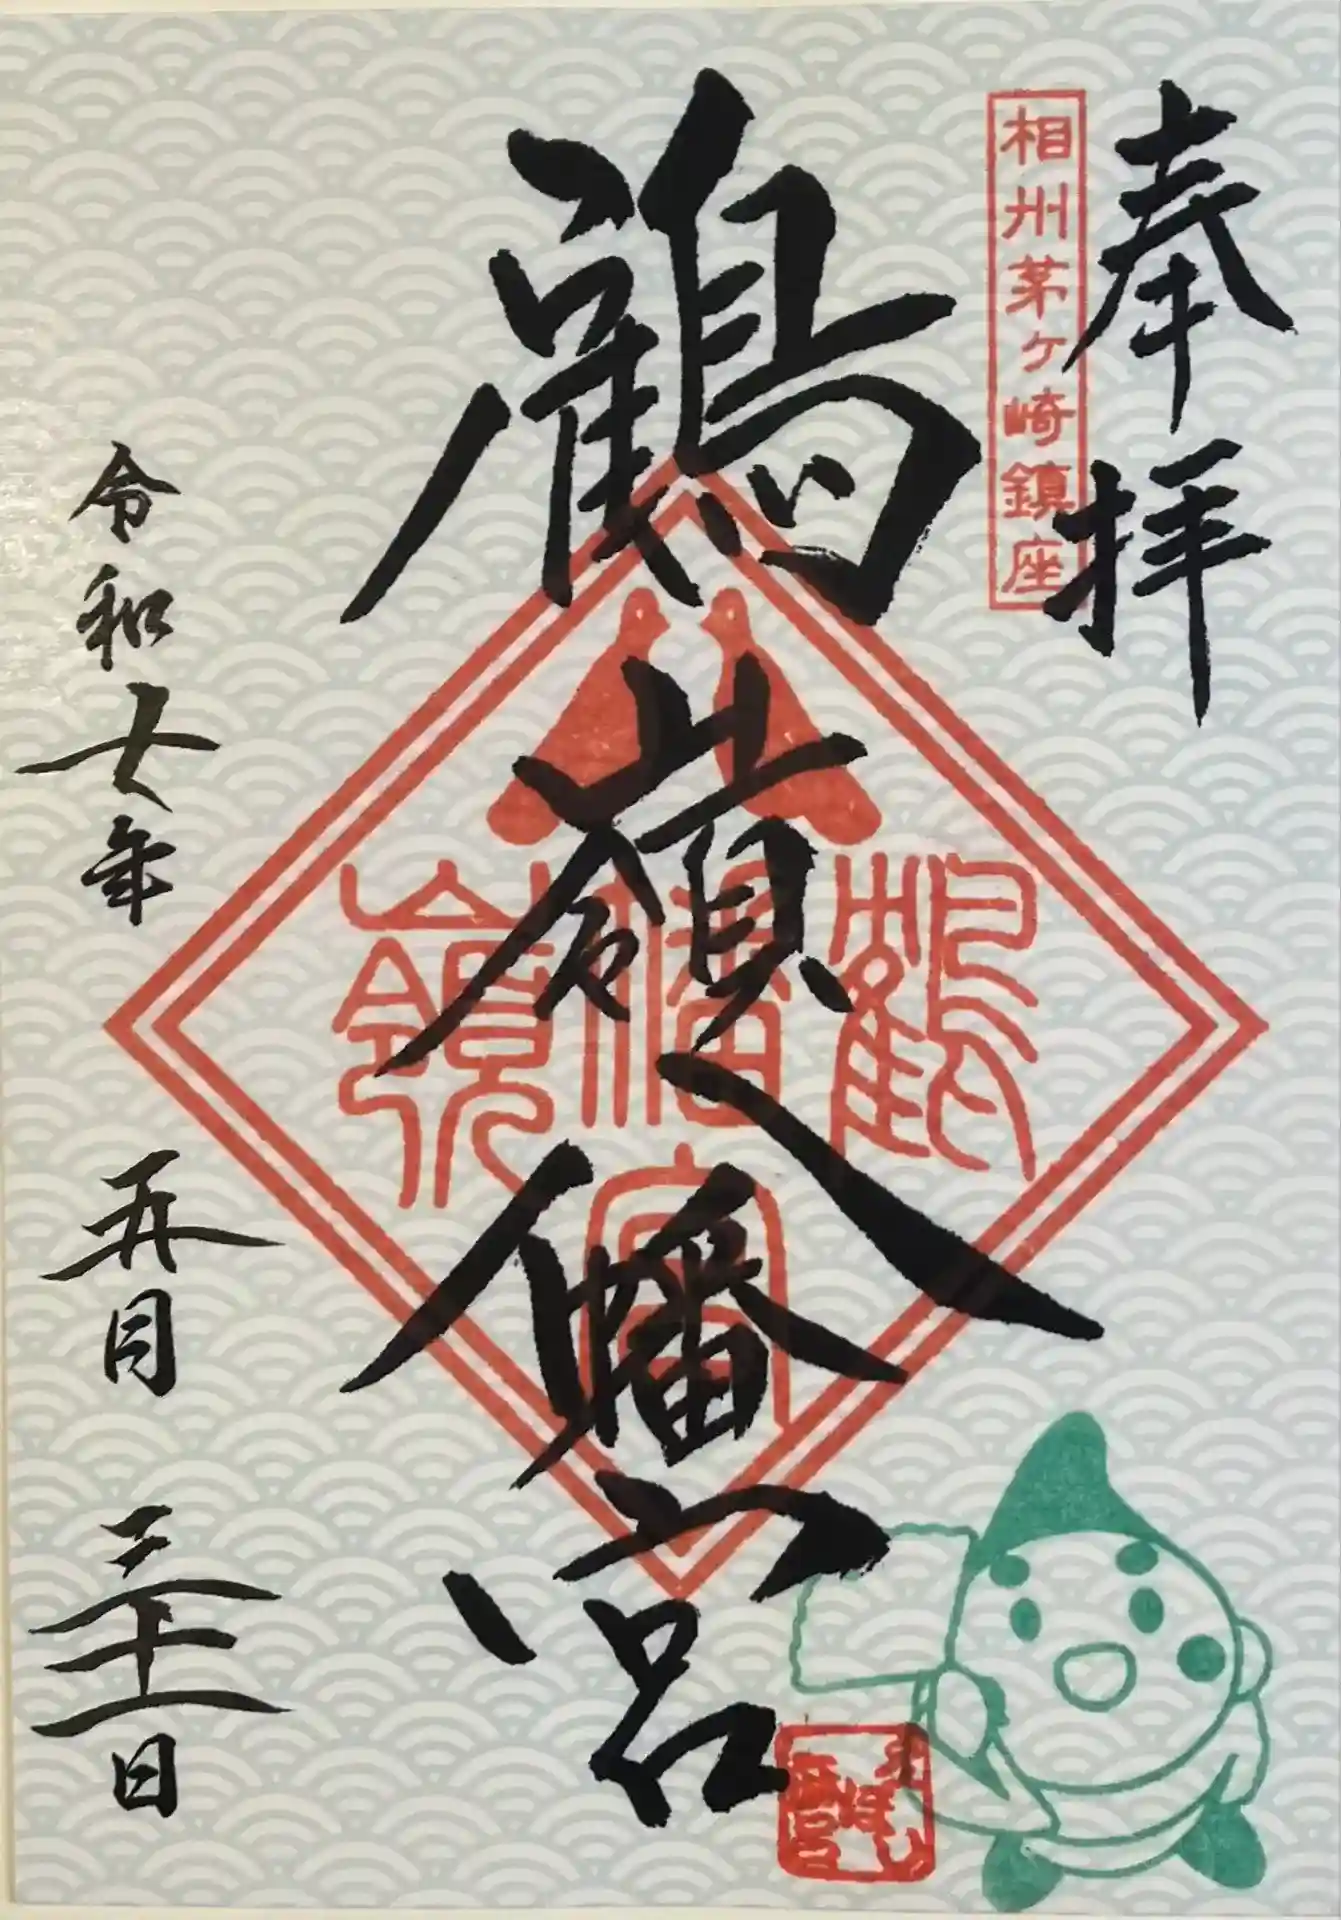 奉拝
相州茅ヶ崎鎮座
鶴嶺八幡宮
鶴
八幡宮
嶺
令和七年 五月 三十一日